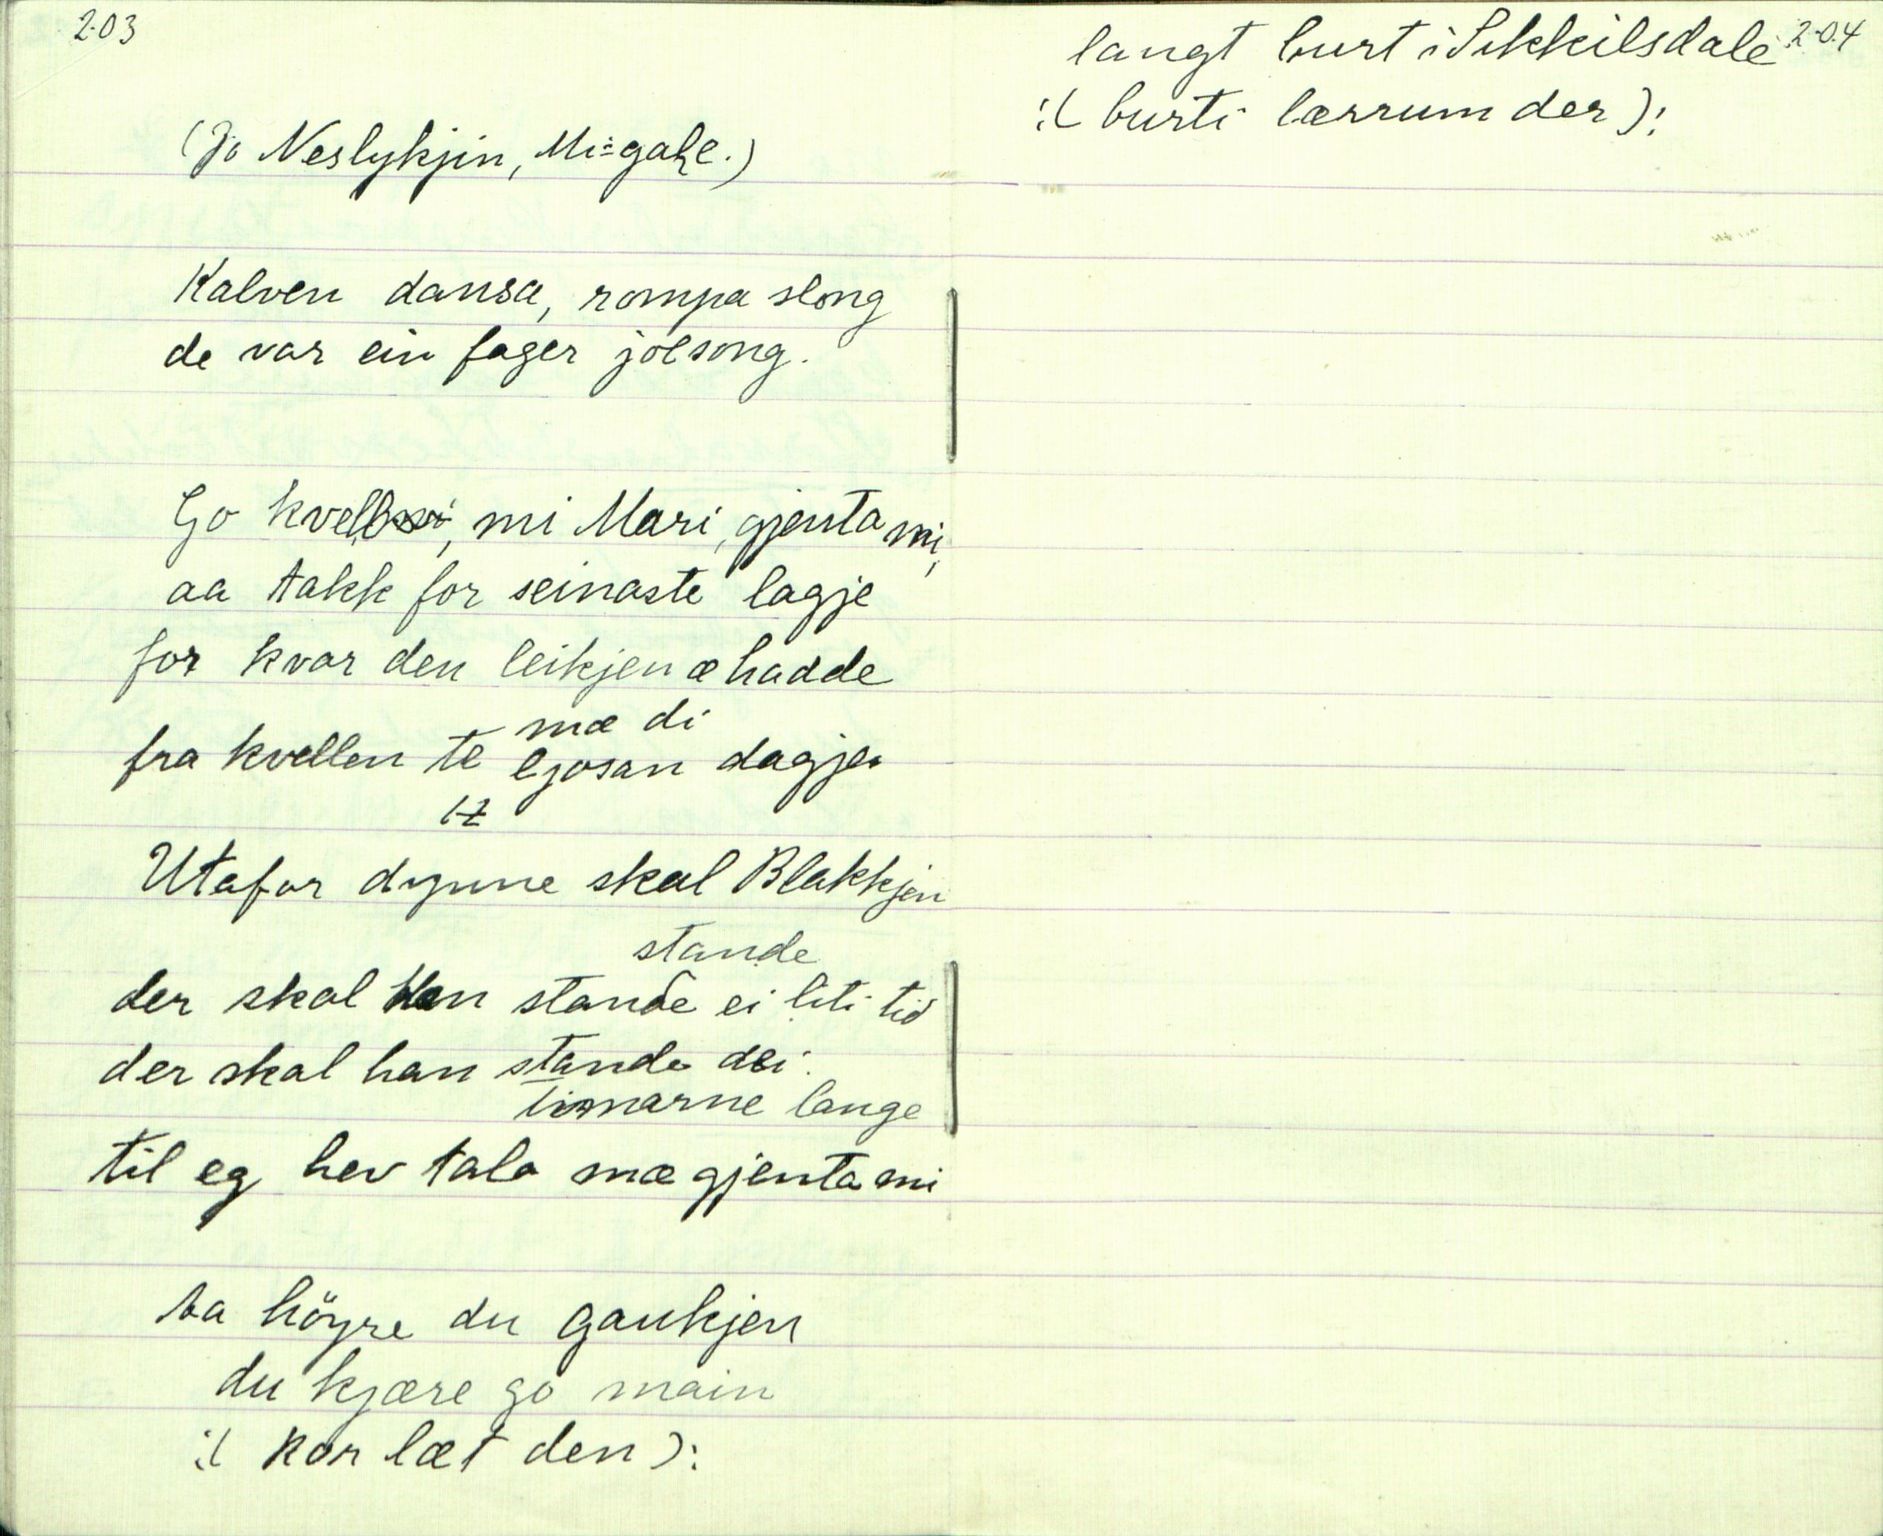 203
(Jo Neslykjin, Mi=gahe.)
Kalven dansa, rompa slong
de var ein fager jolsong.
Go kvell, mi Mari, gjenta mi,
aa takk for seinaste lagje
for kvar den leikjen æ hadde
mæ di
fra kvellen te ljosan dagje
Utafor dynne skal Blakkjen
stande
der skal han stande ei liti tid
der skal han stande dei
timarne lange
til eg hev tala mæ gjenta mi
Aa höyre du gaukjen
du kjære go main
:( kor læt den ):
204
langt burt i Sikkilsdale
:( burti lærrum der ):